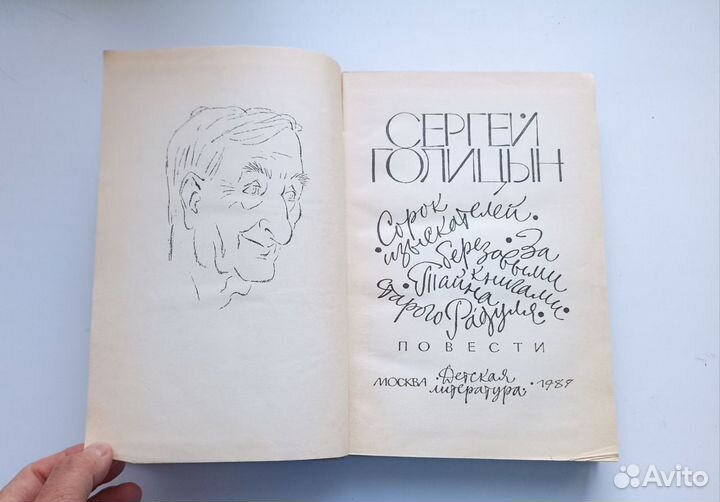 СЕРГЕЙ
ГОЛИЦЫН
• Сорок
изыскателей •
• За
березовыми
книгами •
• Тайна
старого Радуля •
ПОВЕСТИ
МОСКВА • Детская
литература • 1989
Avito